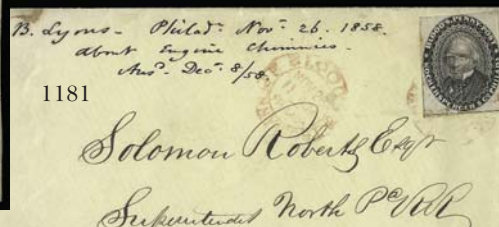 B. Lyons - Philad: Nov: 26. 1858.
about Engine Chimnies -
Ans. Dec: 8/58.
1181
Solomon Roberts Esqr
Superintendt North Pa RR